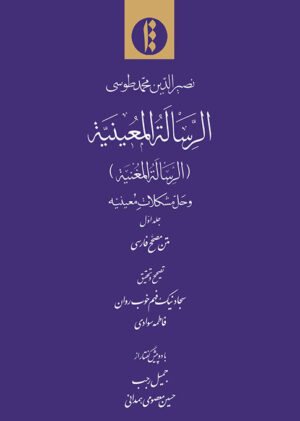 نصیرالدین محمد طوسی
الرِّسالَةُ المُعینیَّة
(الرِّسالَةُ المُغنیَة)
وحل مشکلات معینیه
جلد اول
متن مصحح فارسی
تصحیح و تحقیق
سجاد نیک فهم خوب روان
فاطمه سوادی
با دو پیش گفتار از
جمیل رجب
حسین معصومی همدانی